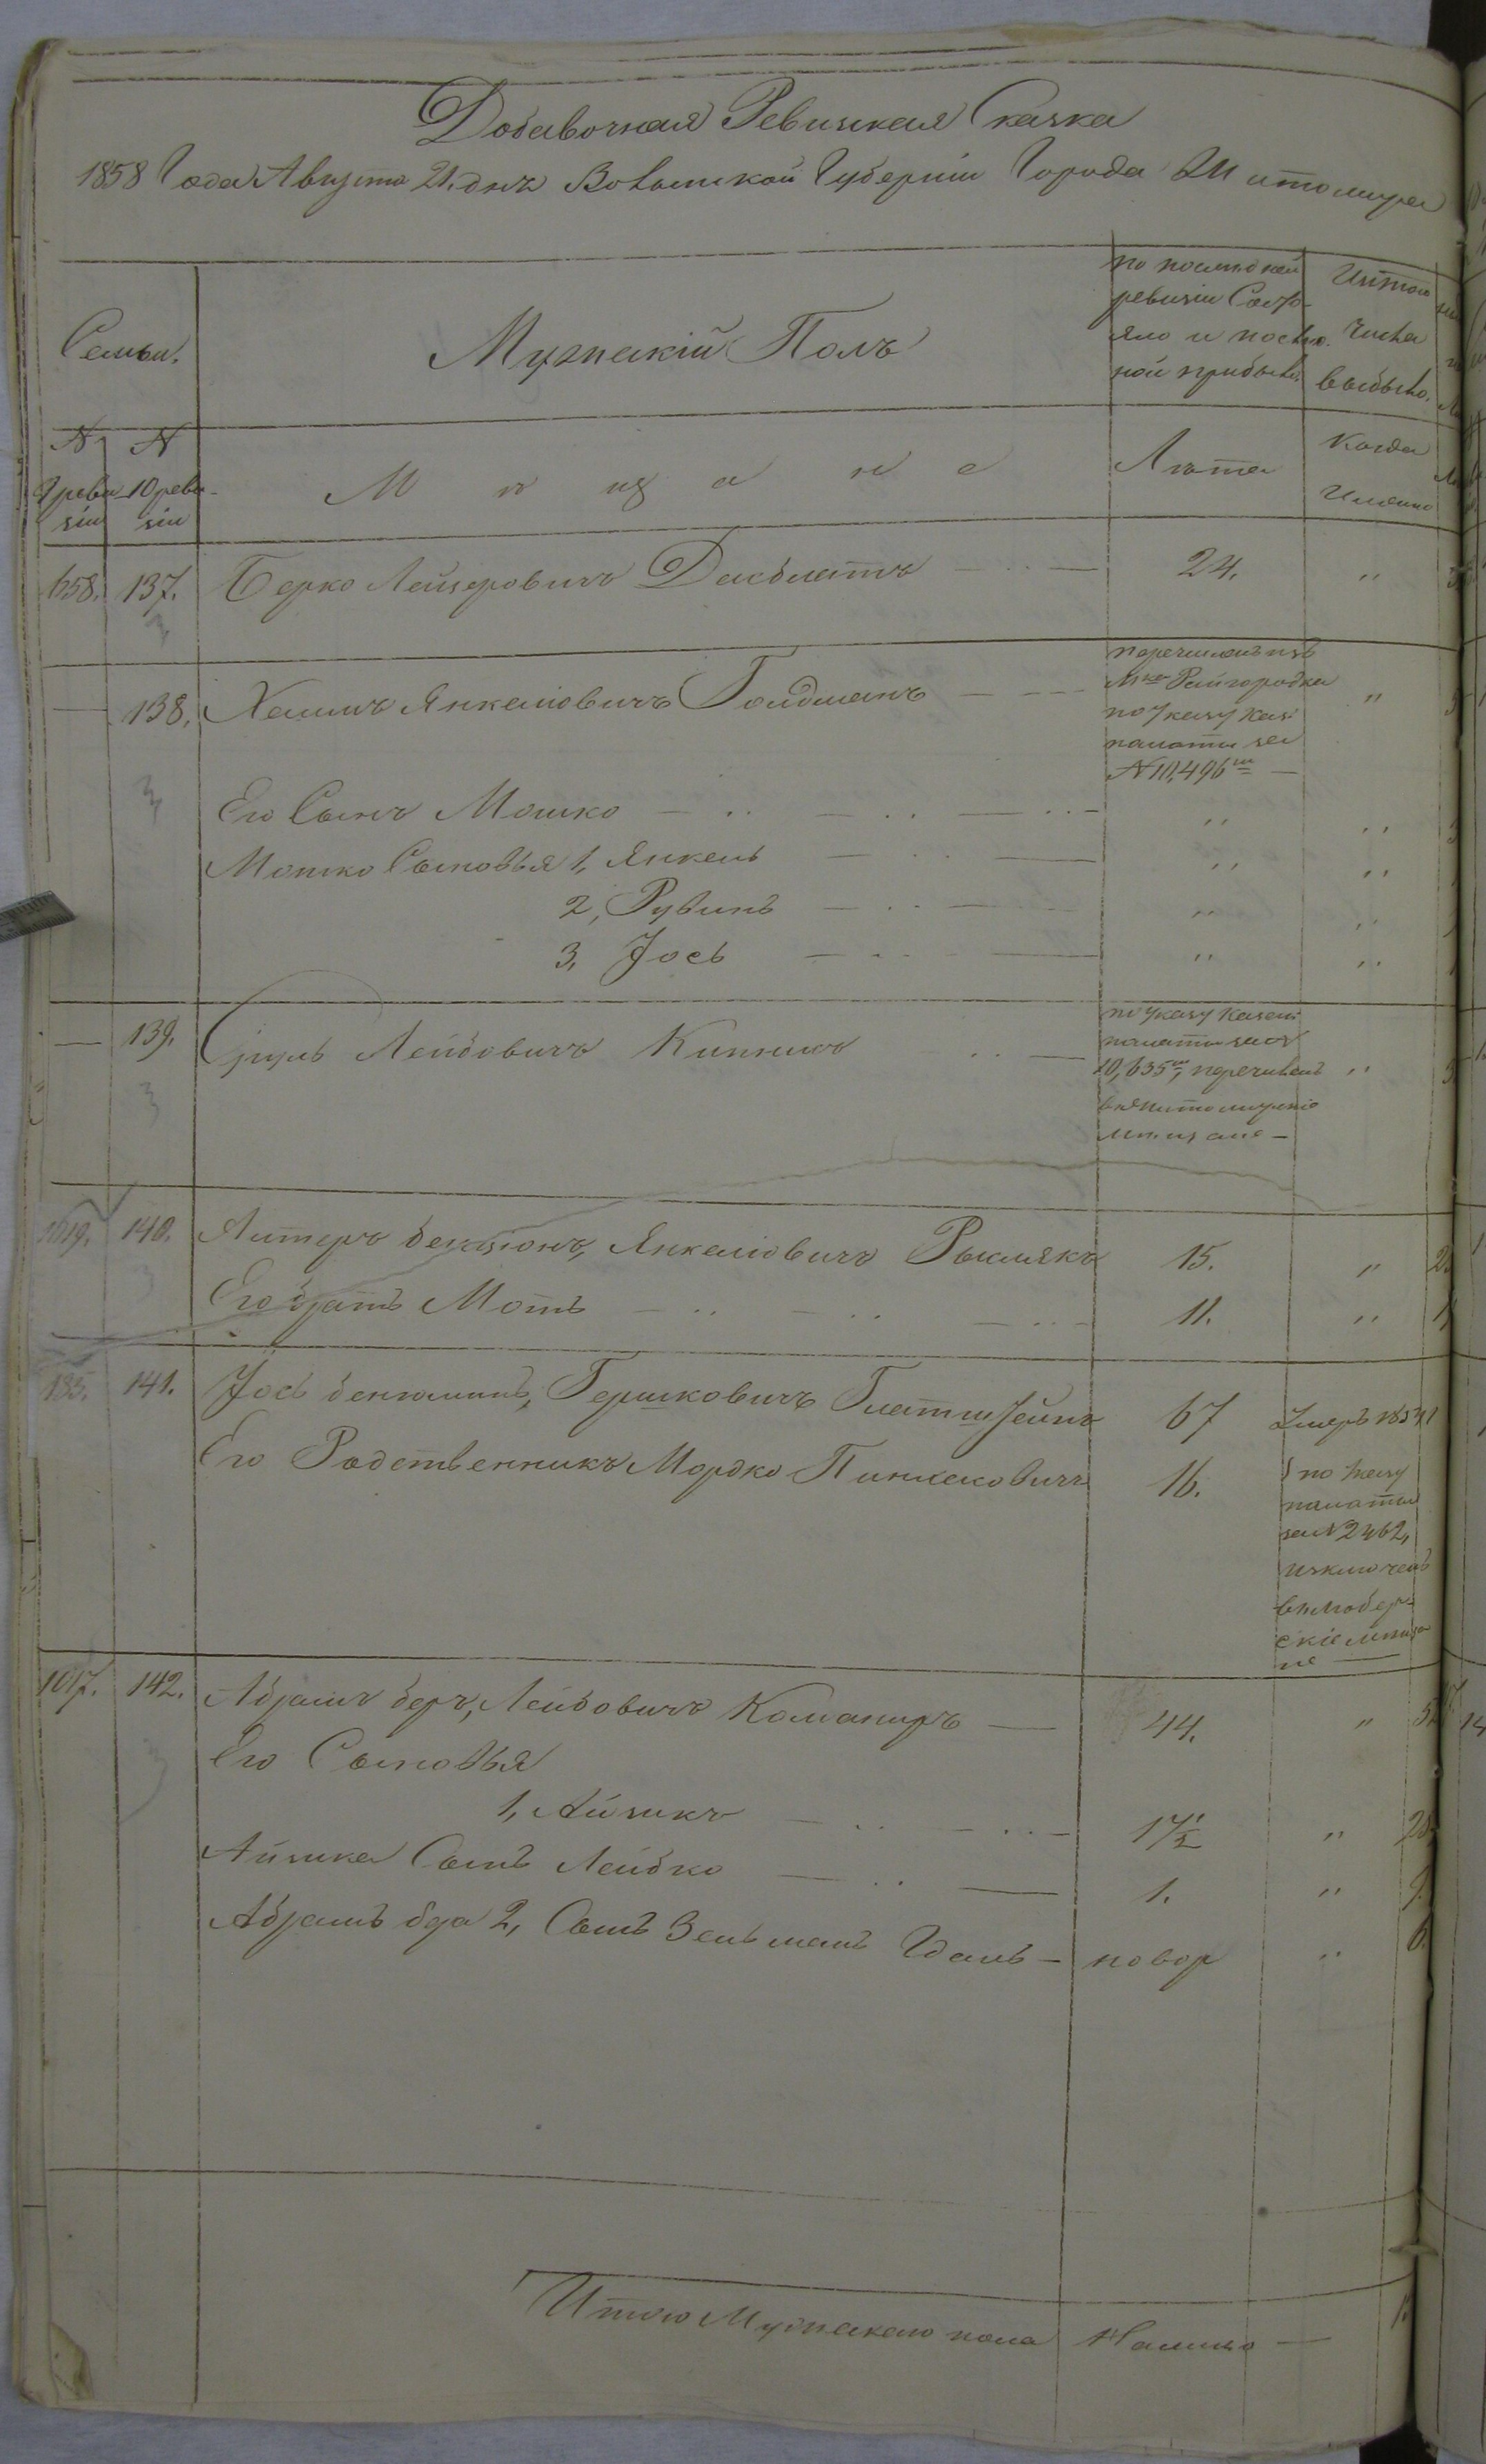 Добавочная Ревизкая Сказка
1858 Года Августа 21. дня Волынской Губерніи Города Житомира
Семьи.
Мужескій Полъ
по послѣдней
ревизіи Состо-
яло и послѣ.
ной прибыло.
Изтого
Числа
выбыло.
N N
9 реви- 10 реви-
зіи зіи
М ѣ щ а н е
Лѣта
Когда
Именно
658. 137. Берко Лейзеровичъ Дасблатъ 24. "
138. Хаимъ Янкеліовичъ Голдманъ "
перечисленъ изъ
Мка Райгородка
по Указу Каз:
палаты за
N 10,496м
Его Сынъ Мошко " "
Мошко Сыновья 1, Янкель " "
2, Рувинъ " "
3, Іось " "
139. Сруль Лейбовичъ "
по Указу Казен:
палаты за N
10,635м, перечисленъ
вжитомирскіе
мѣщане
1019. 140. Алтеръ бенціонъ, Янкеліовичъ Рымлякъ 15. "
Его братъ Моть 11. "
135. 141. Іось беніаминъ, Гершковичъ Глатштейнъ 67 Умеръ
Его Родственникъ Мордко Пинхасовичъ 16.
по Указу
палаты
за N 2462,
изключенъ
скіе мѣща
не
1017. 142. Абрамъ беръ, Лейбовичъ Команиръ 44. "
Его Сыновья
1, Айзикъ 17½ "
Айзика Сынъ Лейбко 1. "
Абрамъ бера 2, Сынъ Зельманъ Гдаль новор "
Итого Мужескаго пола Налицо